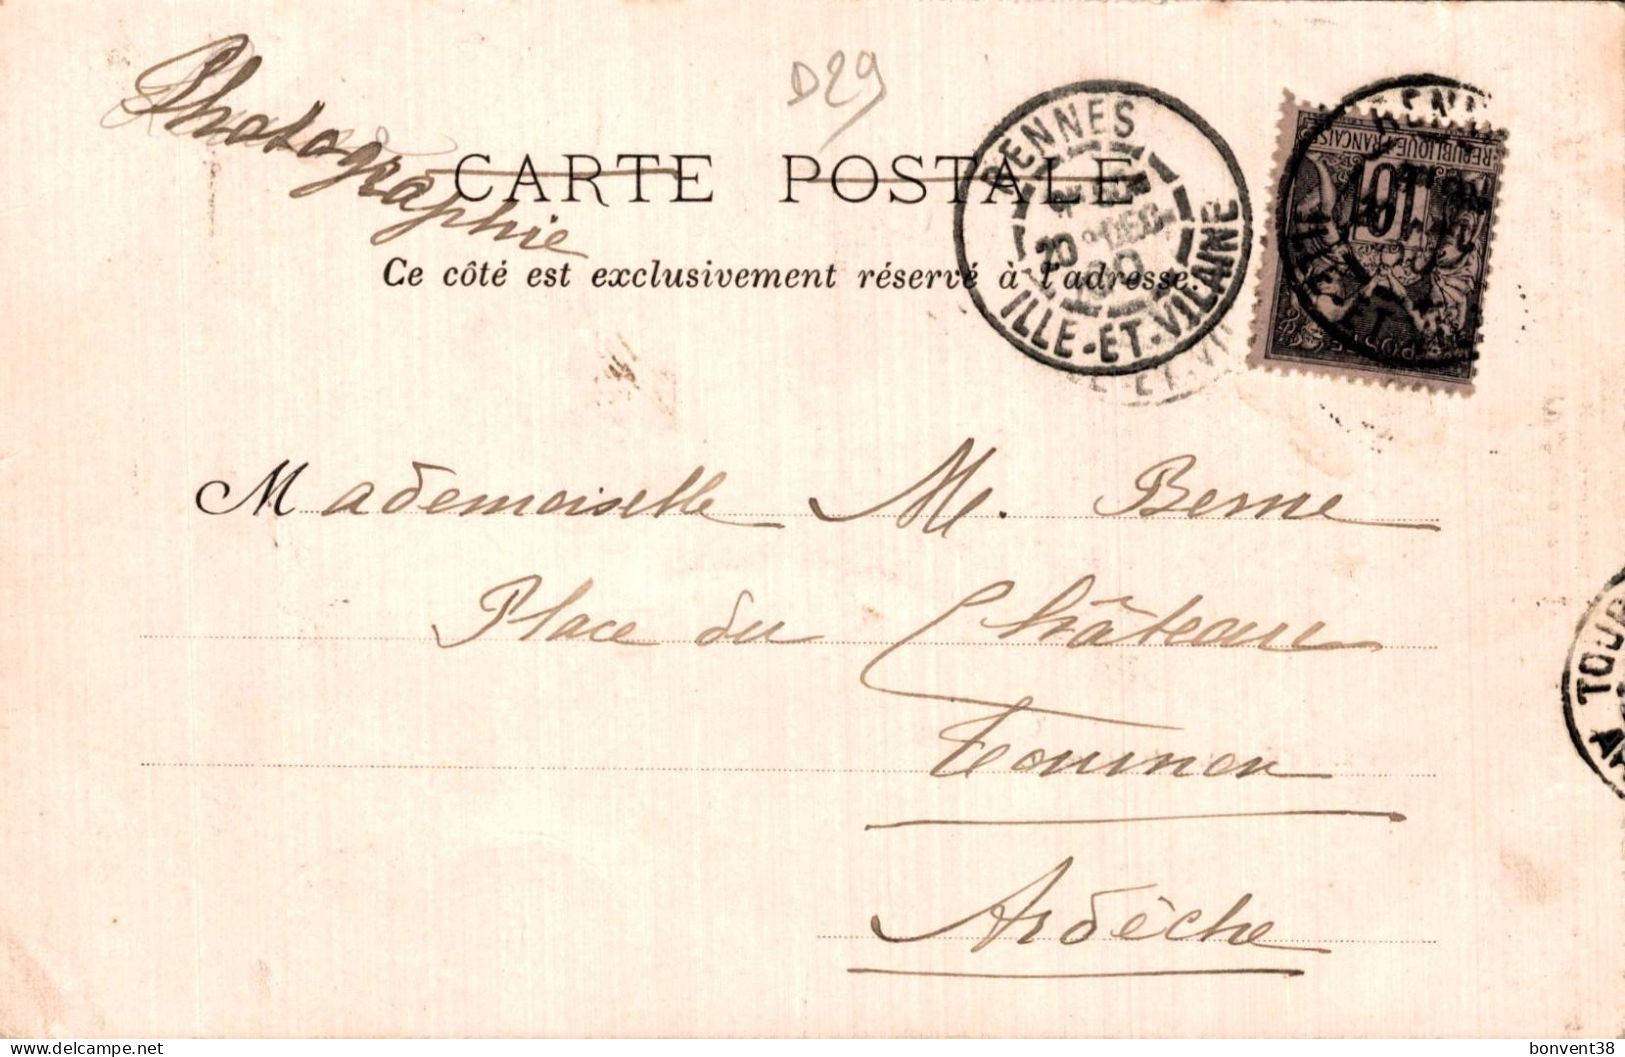 Photographie
D29
CARTE POSTALE
Ce côté est exclusivement réservé à l'adresse.
RENNES
DEC
ILLE-ET-VILAINE
REPUBLIQUE FRANÇAISE
10
Mademoiselle M. Berne
Place du Château
Tournon
Ardèche
delcampe.net
bonvent38